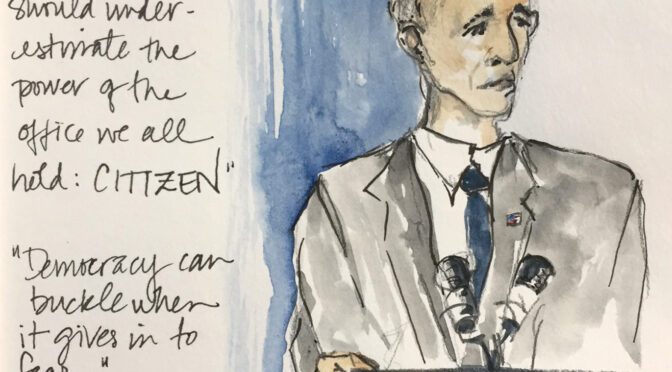 should under-
estimate the
power of the
office we all
held: CITIZEN"
"Democracy can
buckle when
it gives in to
"